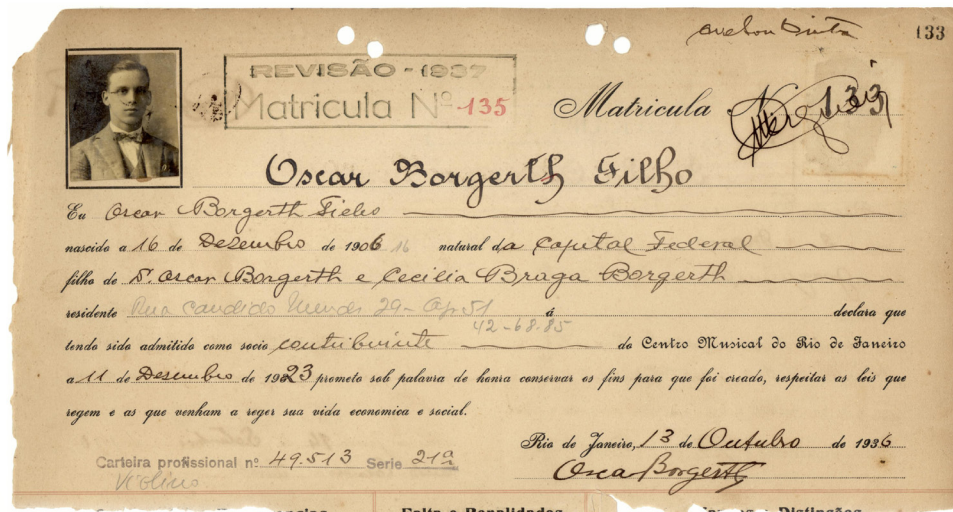 133
REVISÃO - 1937
Matricula Nº 135
Matricula 133
Oscar Borgerth Filho
Eu Oscar Borgerth Filho
nascido a 16 de Dezembro de 1906 16 natural da Capital Federal
filho de D. Oscar Borgerth e Cecilia Braga Borgerth
residente Rua Candido Mendes 29 - Ap 51 á declara que
42-68-85
tendo sido admitido como socio contribuinte do Centro Musical do Rio de Janeiro
a 11 de Dezembro de 1923 prometo sob palavra de honra conservar os fins para que foi creado, respeitar as leis que
regem e as que venham a reger sua vida economica e social.
Rio de Janeiro, 13 de Outubro de 1936
Carteira profissional nº 49.513 Serie 21ª
Oscar Borgerth
Violino
Falta e Penalidades Distinções